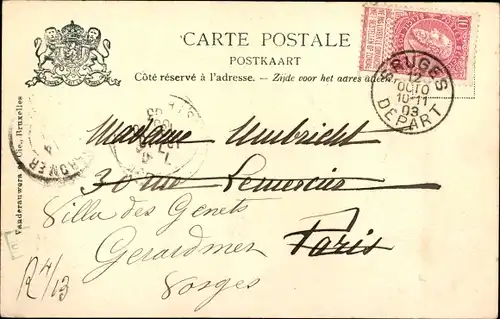 CARTE POSTALE
POSTKAART
Côté réservé à l'adresse. — Zijde voor het adres alleen.
10
BRUGES
12
OCTO
10-11
03
DEPART
Madame Umbricht
30 rue Lemercier
Paris
Villa des Genets
Gerardmer
Vosges
R 4/13
Vanderauwera & Cie, Bruxelles